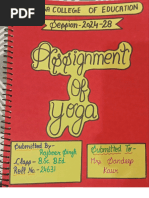 COLLEGE OF EDUCATION
Session-2024-28
Assignment
Of
Yoga
Submitted By-
Rajveer Singh
Class- B.Sc B.Ed
Roll No- 24631
Submitted To-
Mrs. Sandeep
Kaur